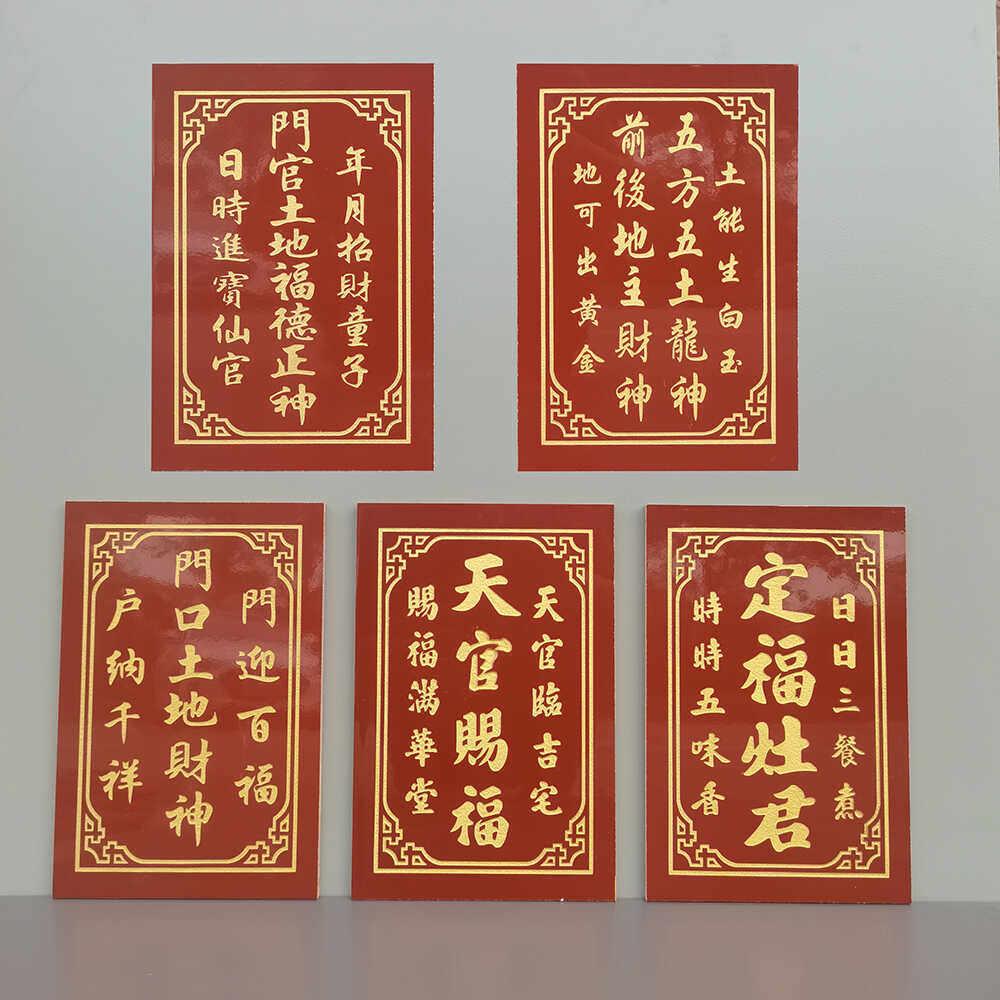 年月招財童子
門官土地福德正神
日時進寶仙官
土能生白玉
五方五土龍神
前後地主財神
地可出黄金
門迎百福
門口土地財神
户納千祥
天官臨吉宅
天官賜福
賜福滿華堂
日日三餐煮
定福灶君
時時五味香